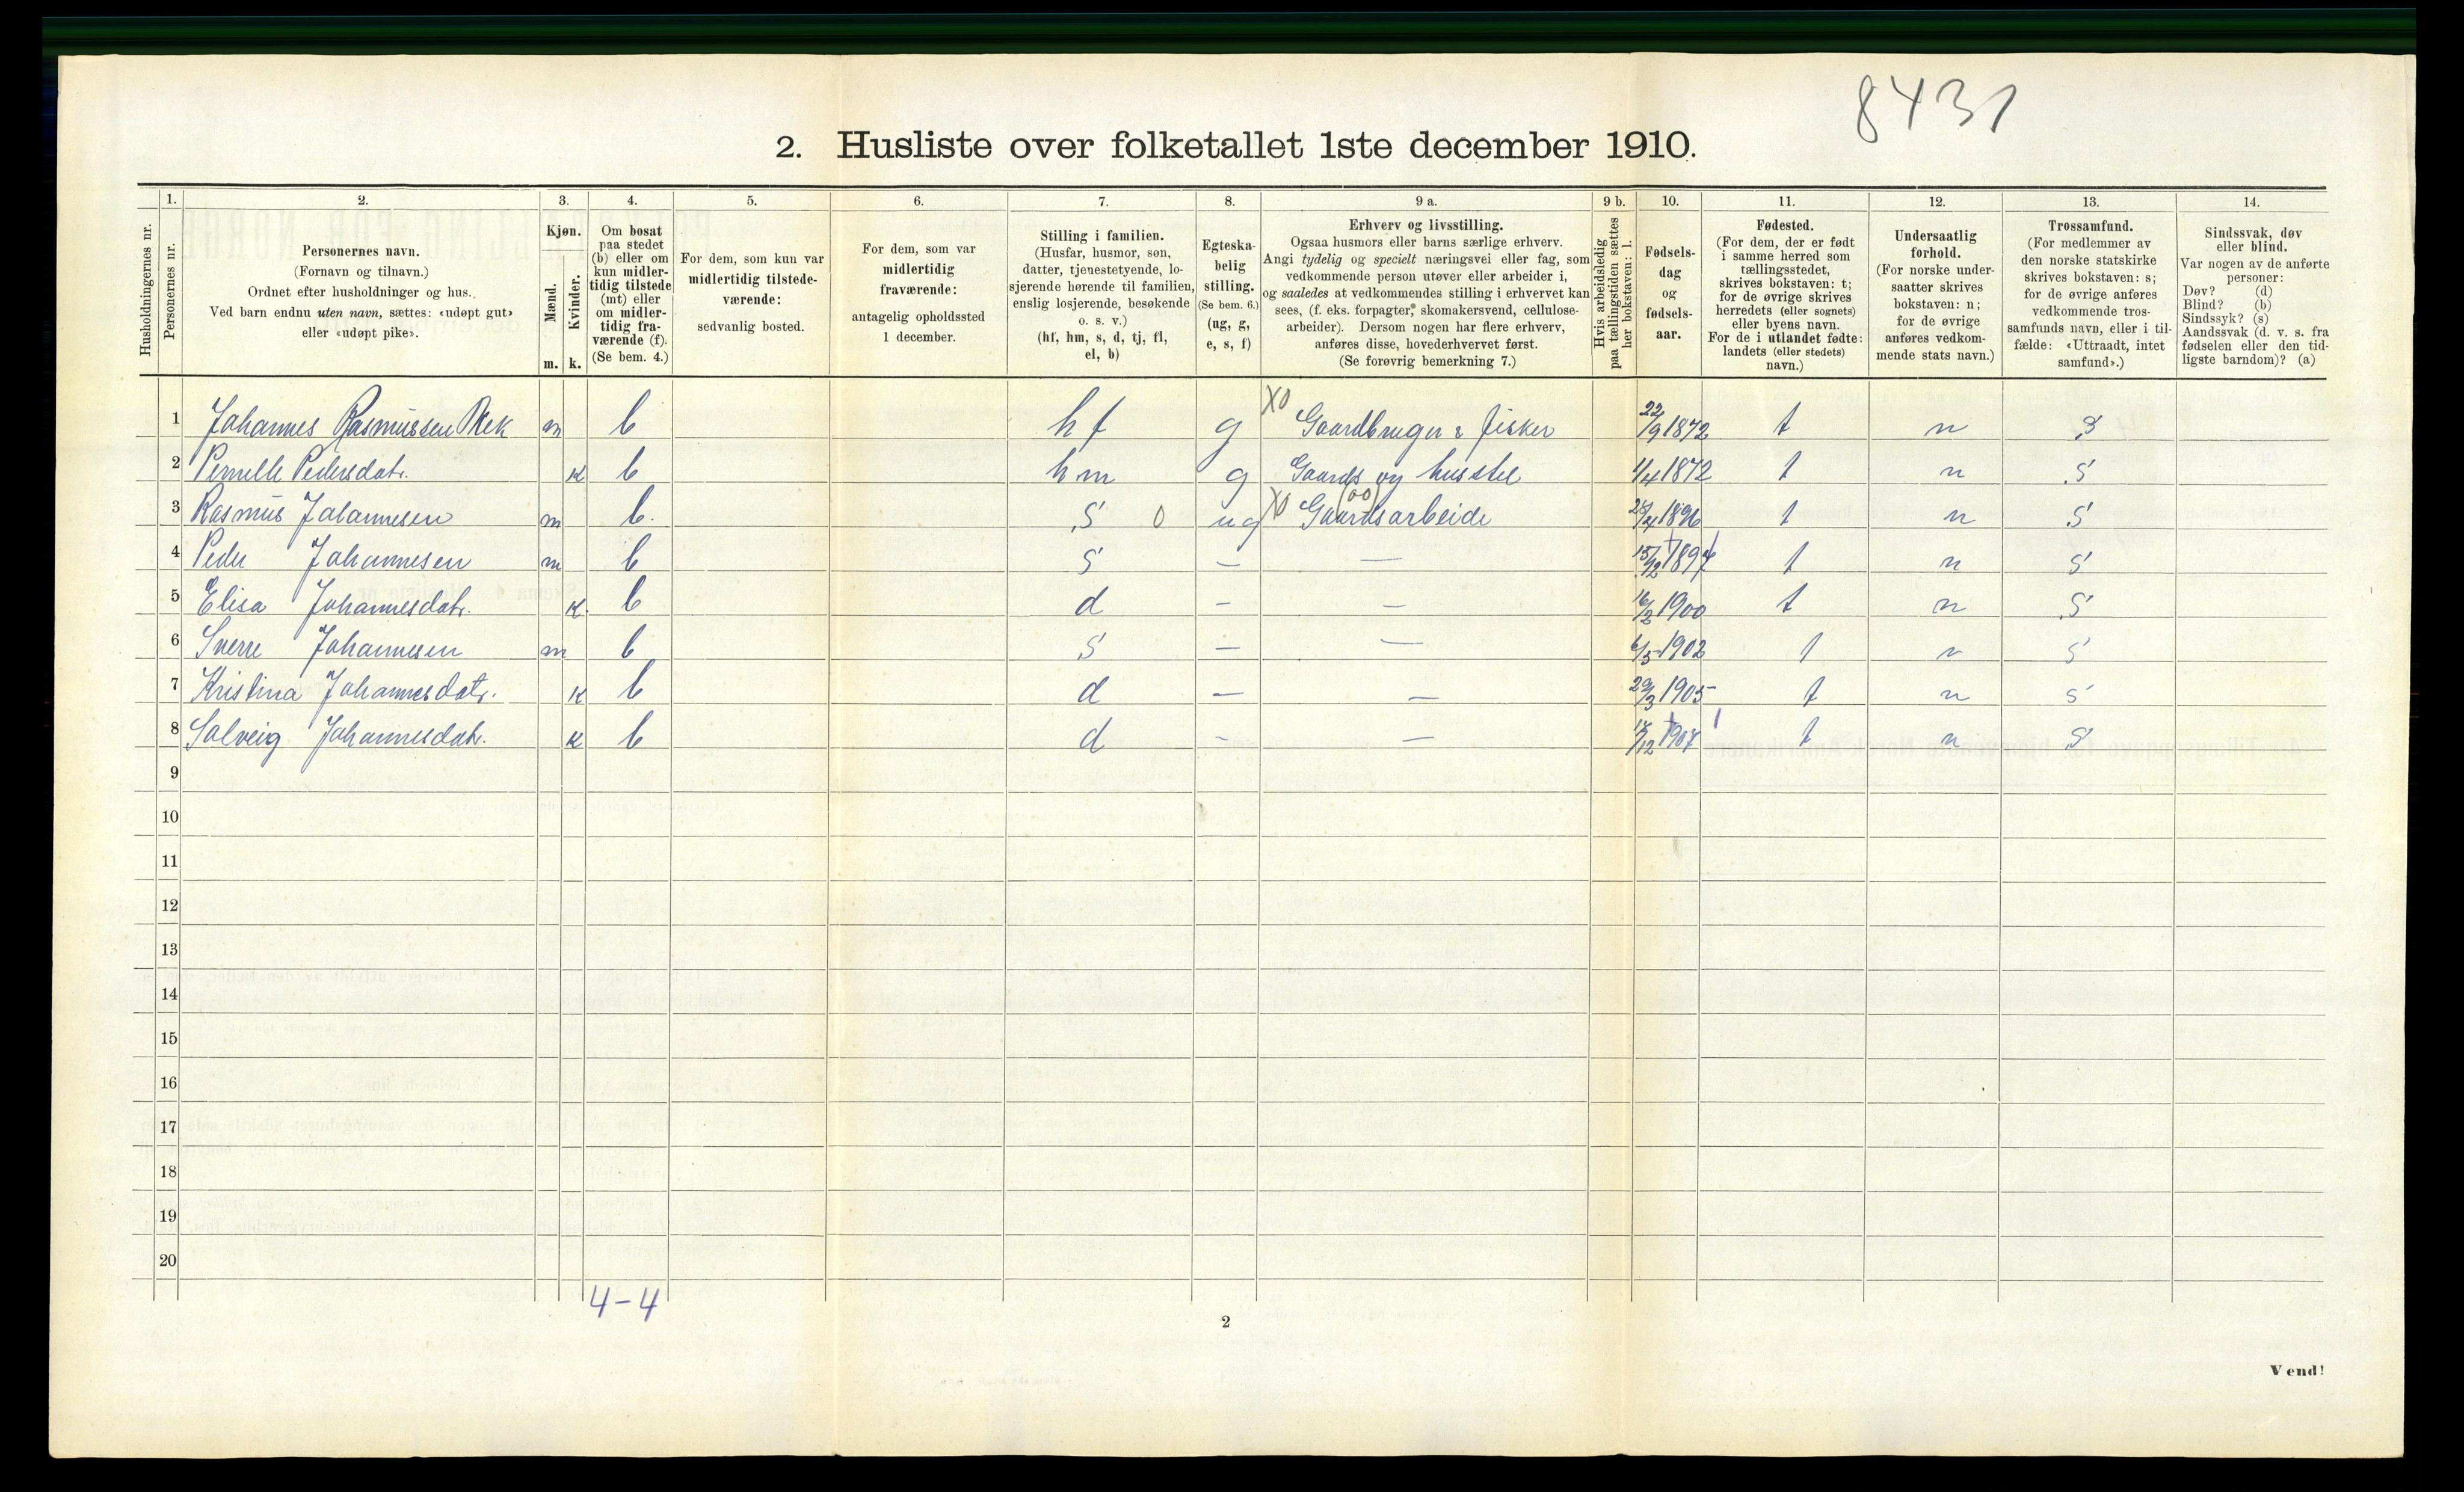 8431
2. Husliste over folketallet 1ste december 1910.
Husholdningernes nr.
1. Personernes nr.
2. Personernes navn.
(Fornavn og tilnavn.)
Ordnet efter husholdninger og hus.
Ved barn endnu uten navn, sættes: «udøpt gut»
eller «udøpt pike».
3. Kjøn.
Mænd. m.
Kvinder. k.
4. Om bosat
paa stedet
(b) eller om
kun midler-
tidig tilstede
(mt) eller
om midler-
tidig fra-
værende (f).
(Se bem. 4.)
5. For dem, som kun var
midlertidig tilstede-
værende:
sedvanlig bosted.
6. For dem, som var
midlertidig
fraværende:
antagelig opholdssted
1 december.
7. Stilling i familien.
(Husfar, husmor, søn,
datter, tjenestetyende, lo-
sjerende hørende til familien,
enslig losjerende, besøkende
o. s. v.)
(hf, hm, s, d, tj, fl,
el, b)
8. Egteska-
belig
stilling.
(Se bem. 6.)
(ug, g,
e, s, f)
9 a. Erhverv og livsstilling.
Ogsaa husmors eller barns særlige erhverv.
Angi tydelig og specielt næringsvei eller fag, som
vedkommende person utøver eller arbeider i,
og saaledes at vedkommendes stilling i erhvervet kan
sees, (f. eks. forpagter, skomakersvend, cellulose-
arbeider). Dersom nogen har flere erhverv,
anføres disse, hovederhvervet først.
(Se forøvrig bemerkning 7.)
9 b. Hvis arbeidsledig
paa tællingstiden sættes
her bokstaven: l.
10. Fødsels-
dag
og
fødsels-
aar.
11. Fødested.
(For dem, der er født
i samme herred som
tællingsstedet,
skrives bokstaven: t;
for de øvrige skrives
herredets (eller sognets)
eller byens navn.
For de i utlandet fødte:
landets (eller stedets)
navn.)
12. Undersaatlig
forhold.
(For norske under-
saatter skrives
bokstaven: n;
for de øvrige
anføres vedkom-
mende stats navn.)
13. Trossamfund.
(For medlemmer av
den norske statskirke
skrives bokstaven: s;
for de øvrige anføres
vedkommende tros-
samfunds navn, eller i til-
fælde: «Uttraadt, intet
samfund».)
14. Sindssvak, døv
eller blind.
Var nogen av de anførte
personer:
Døv? (d)
Blind? (b)
Sindssyk? (s)
Aandssvak (d. v. s. fra
fødselen eller den tid-
ligste barndom)? (a)
1 Johannes Rasmussen m b hf g X0 Gaardbruger & fisker 22/9 1872 t n s
2 Pernille Pedersdatr. k b hm g Gaards og husstel 1/4 1872 t n s
3 Rasmus Johannesen m b. s 0 ug X0 Gaardsarbeide (00) 1896 t n s
4 Peder Johannesen m b s — — 15/12 1897 t n s
5 Elisa Johannesdatr. k. b d — — 16/2 1900 t n s
6 Sverre Johannesen m b s — — 6/5 1902 t n s
7 Kristina Johannesdatr. k b d — — 29/3 1905 t n s
8 Solveig Johannesdatr. k b d — — 17/12 1907 t n s
9
10
11
12
13
14
15
16
17
18
19
20
4-4
2
Vend!